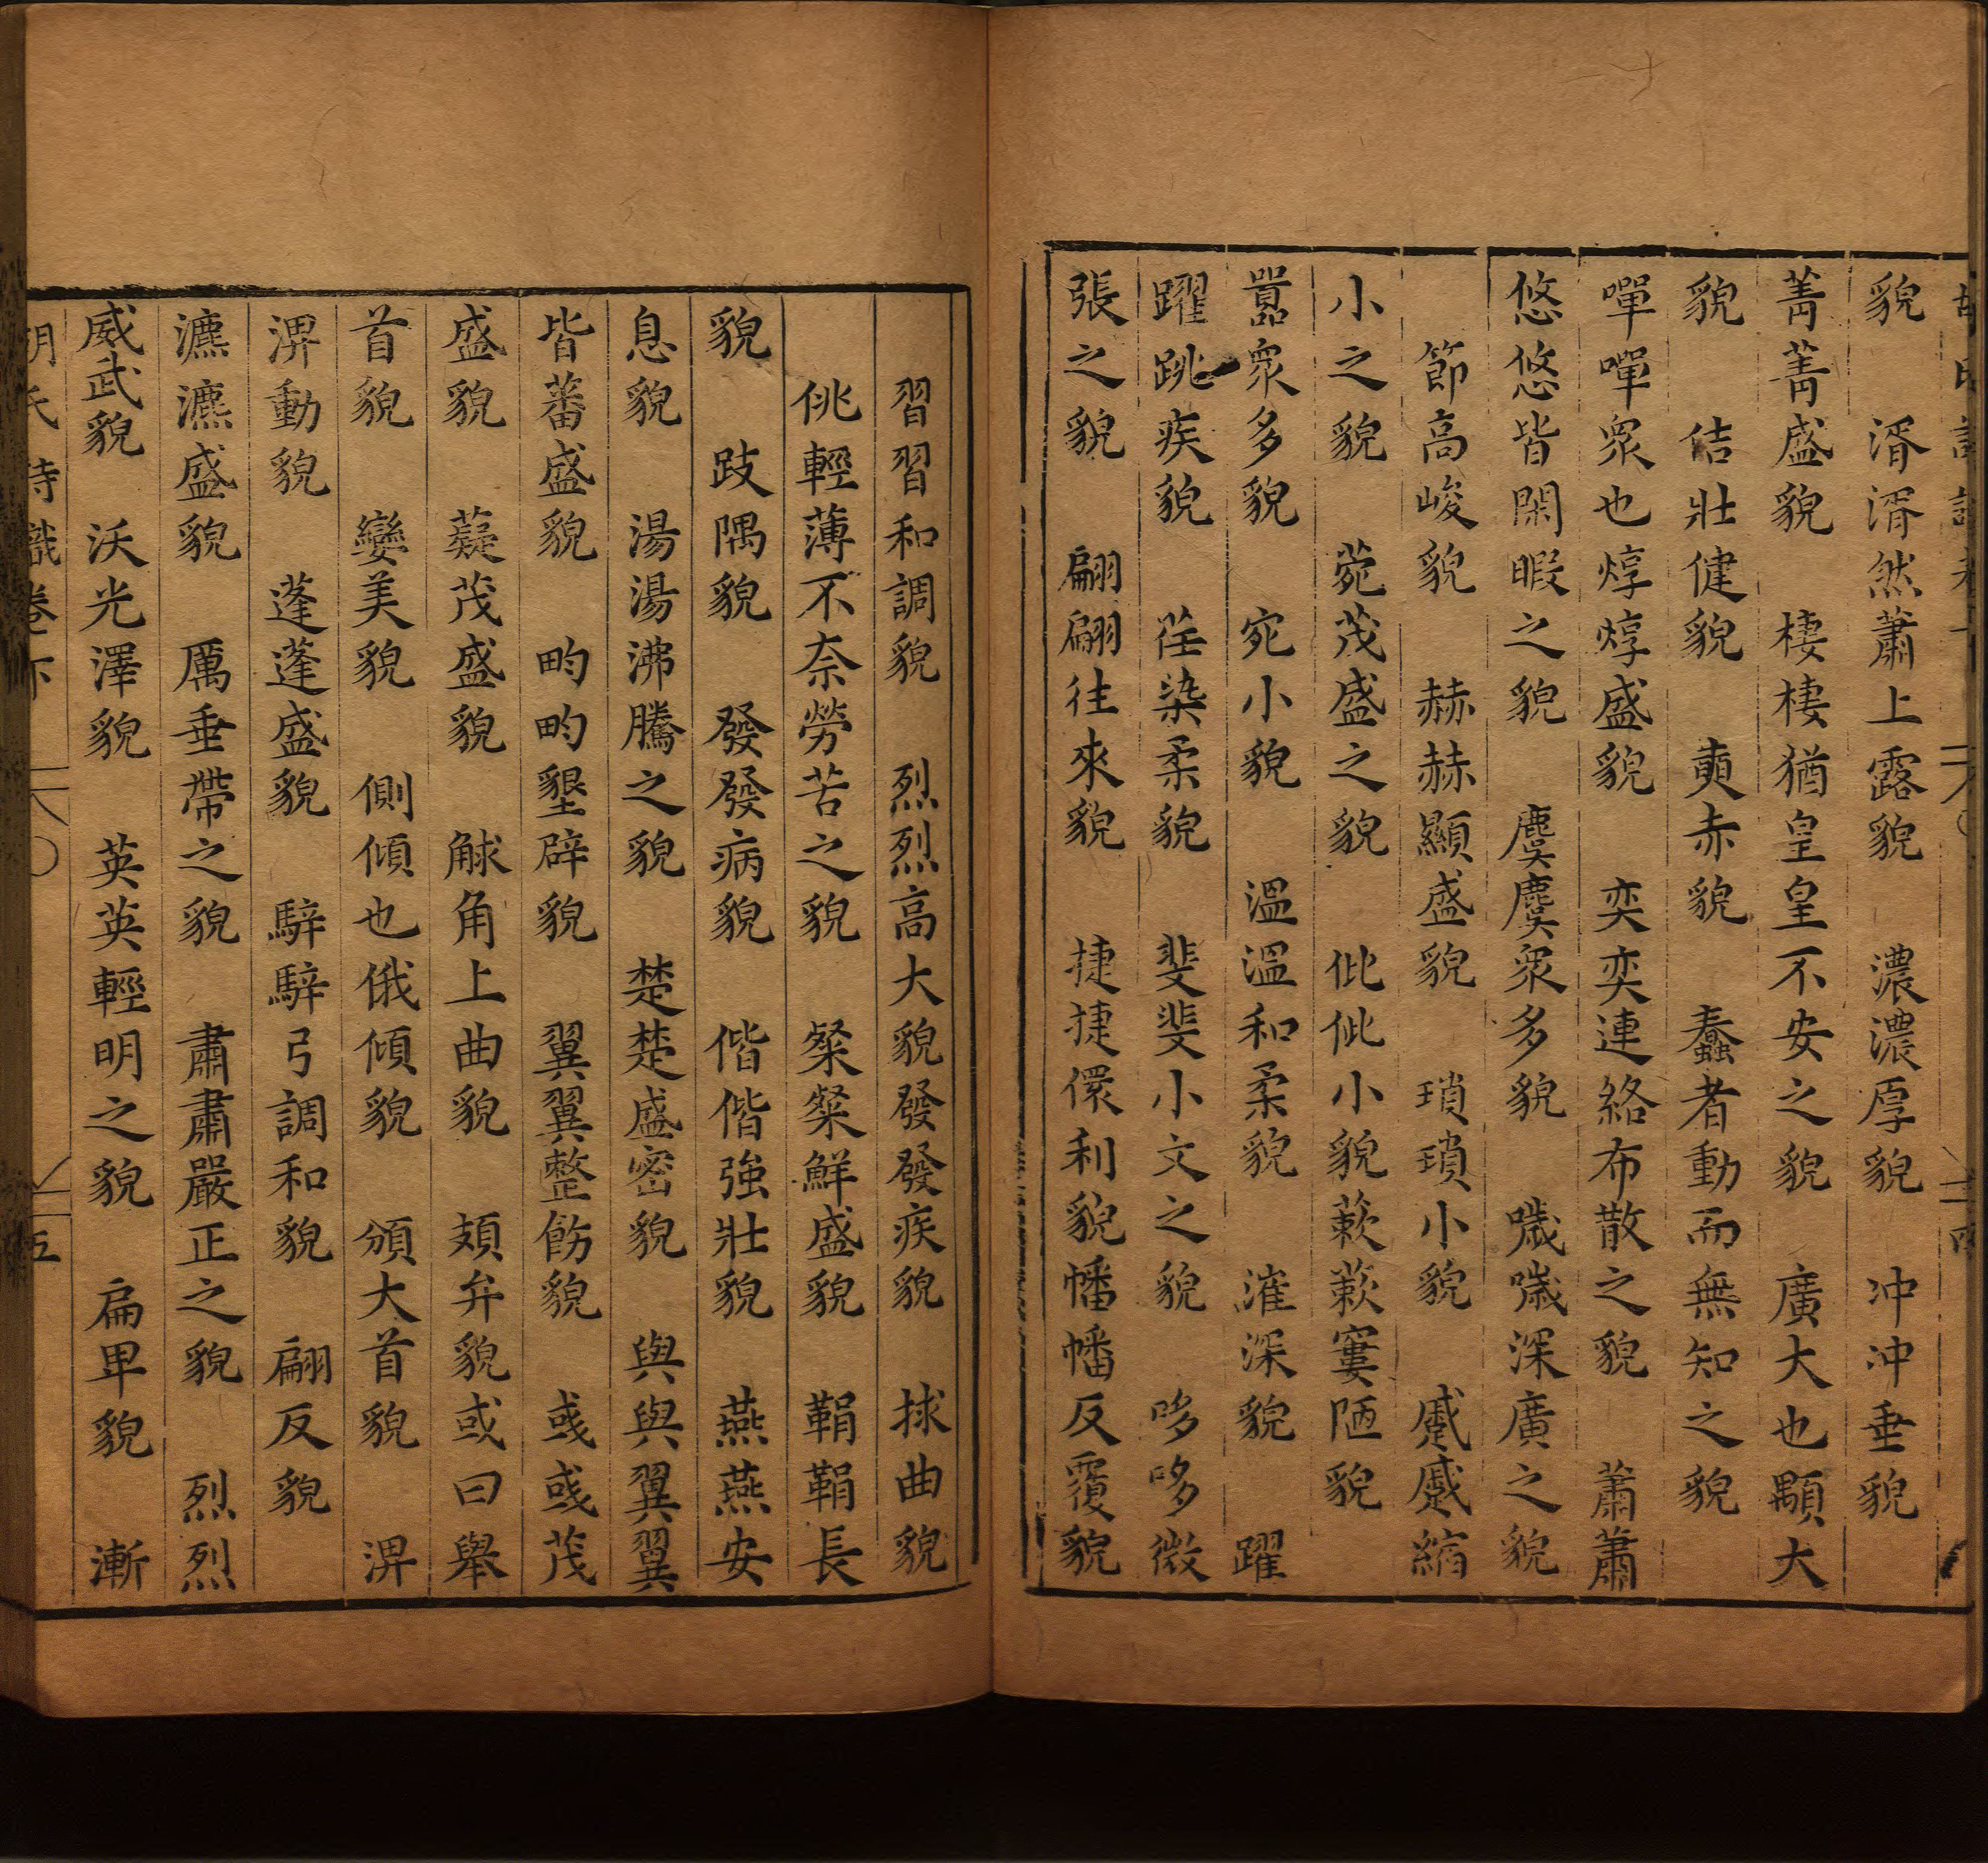 貌　湑湑然蕭上露貌　濃濃厚貌　冲冲垂貌
菁菁盛貌　棲棲猶皇皇不安之貌　廣大也顒大
貌　佶壯健貌　奭赤貌　蠢者動而無知之貌
嘽嘽眾也焞焞盛貌　奕奕連絡布散之貌　蕭蕭
悠悠皆閑暇之貌　麌麌眾多貌　噦噦深廣之貌
節高峻貌　赫赫顯盛貌　瑣瑣小貌　蹙蹙縮
小之貌　菀茂盛之貌　佌佌小貌蔌蔌窶陋貌
嚚眾多貌　宛小貌　溫溫和柔貌　漼深貌　躍
躍跳疾貌　荏染柔貌　斐斐小文之貌　哆哆微
張之貌　翩翩往來貌　捷捷儇利貌幡幡反覆貌
習習和調貌　烈烈高大貌發發疾貌　捄曲貌
佻輕薄不奈勞苦之貌　粲粲鮮盛貌　鞙鞙長
貌　跂隅貌　發發病貌　偕偕強壯貌　燕燕安
息貌　湯湯沸騰之貌　楚楚盛密貌　與與翼翼
皆蕃盛貌　畇畇墾辟貌　翼翼整飭貌　彧彧茂
盛貌　薿茂盛貌　觩角上曲貌　頍弁貌或曰舉
首貌　孌美貌　側傾也俄傾貌　頒大首貌　淠
淠動貌　蓬蓬盛貌　騂騂弓調和貌　翩反貌
瀌瀌盛貌　厲垂帶之貌　肅肅嚴正之貌　烈烈
威武貌　沃光澤貌　英英輕明之貌　扁卑貌　漸
氏詩識卷下　五